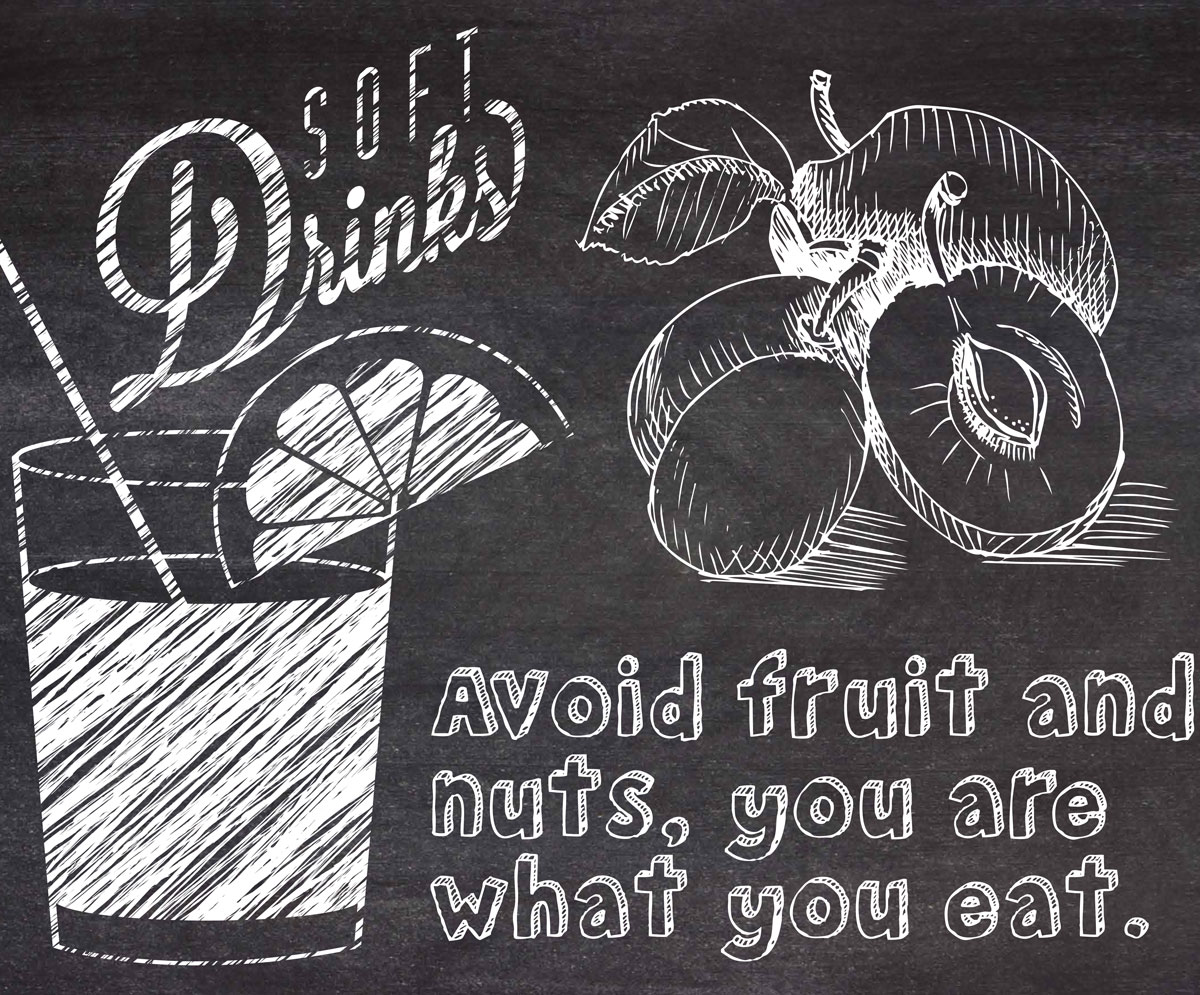 SOFT
Drinks
Avoid fruit and
nuts, you are
what you eat.